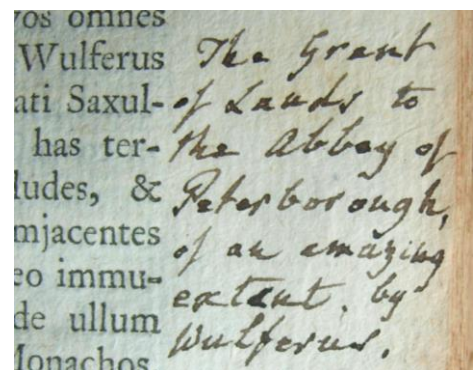 vos omnes
Wulferus
ati Saxul-
has ter-
ludes, &
mjacentes
eo immu-
de ullum
Monachos
The Grant
of Lands to
the Abbey of
Peterborough,
of an amazing
extent, by
Wulferus.